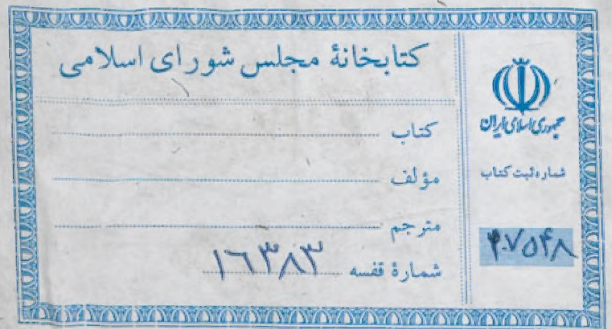 کتابخانهٔ مجلس شورای اسلامی
کتاب
مؤلف
مترجم
شمارهٔ قفسه ۱٦۳۸۳
جمهوری اسلامی ایران
شماره ثبت کتاب